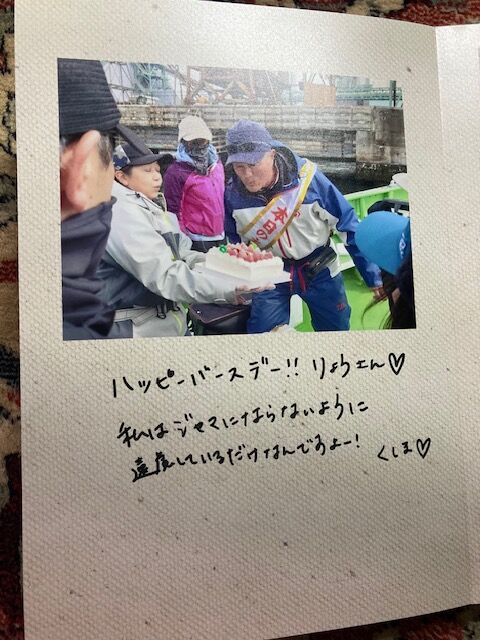 本日の
ハッピーバースデー!! りょうさん♡
私はジャマにならないように
遠慮しているだけなんですよー!
くしま♡